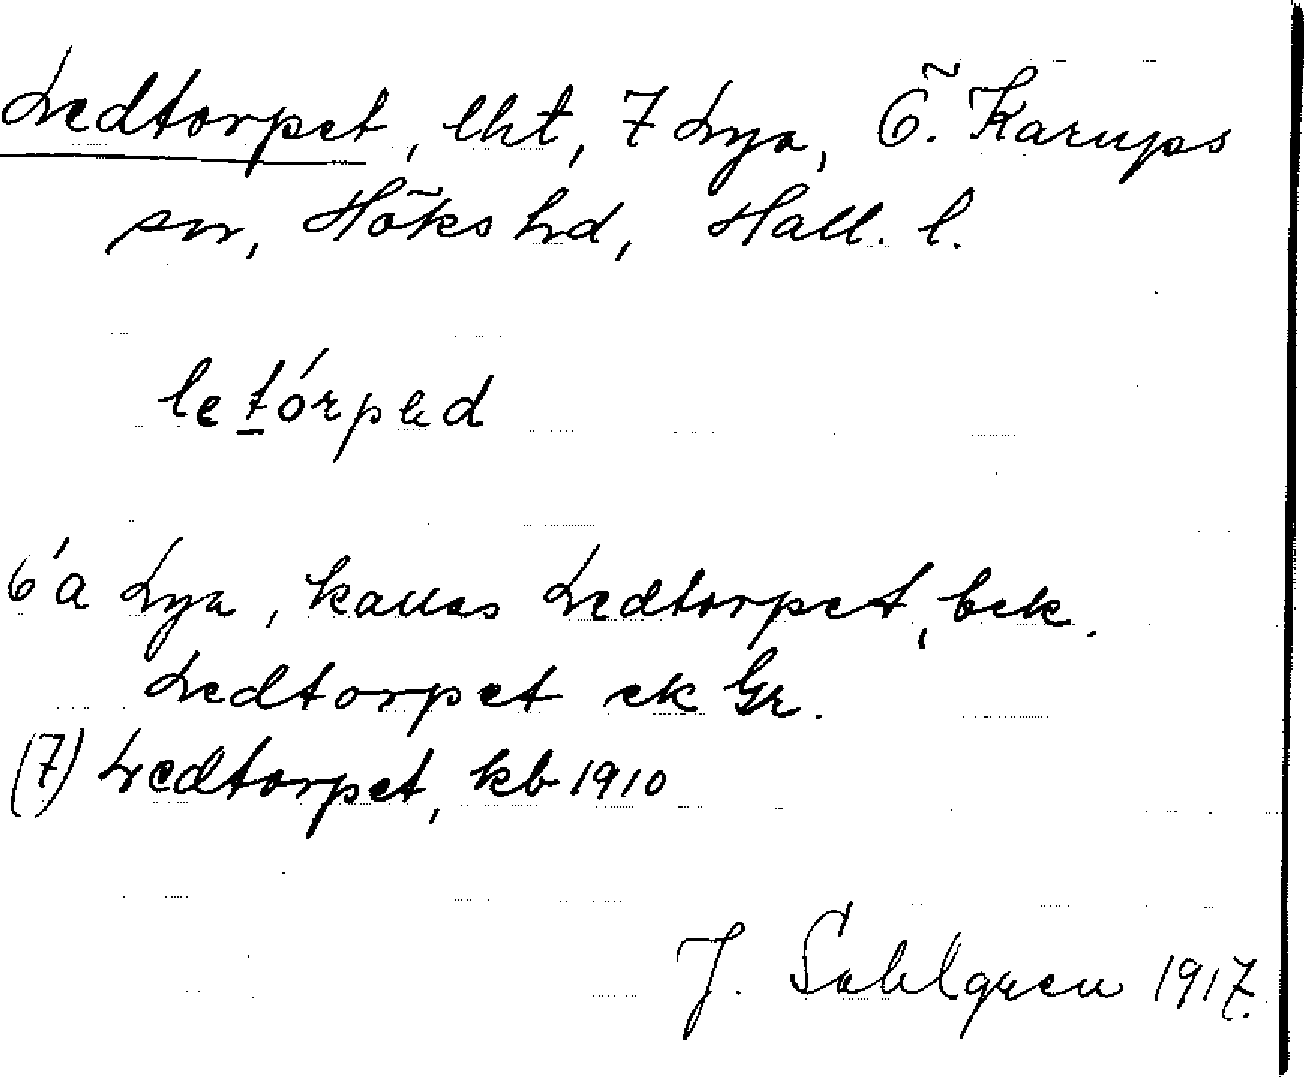 Ledtorpet, lht, 7 Lya, Ö. Karups
sn, Höks hd, Hall. l.
letórpəd
6 a Lya, kallas Ledtorpet, bek.
Ledtorpet ek Gr.
(7) Ledtorpet, kb 1910
J. Sahlgren 1917.